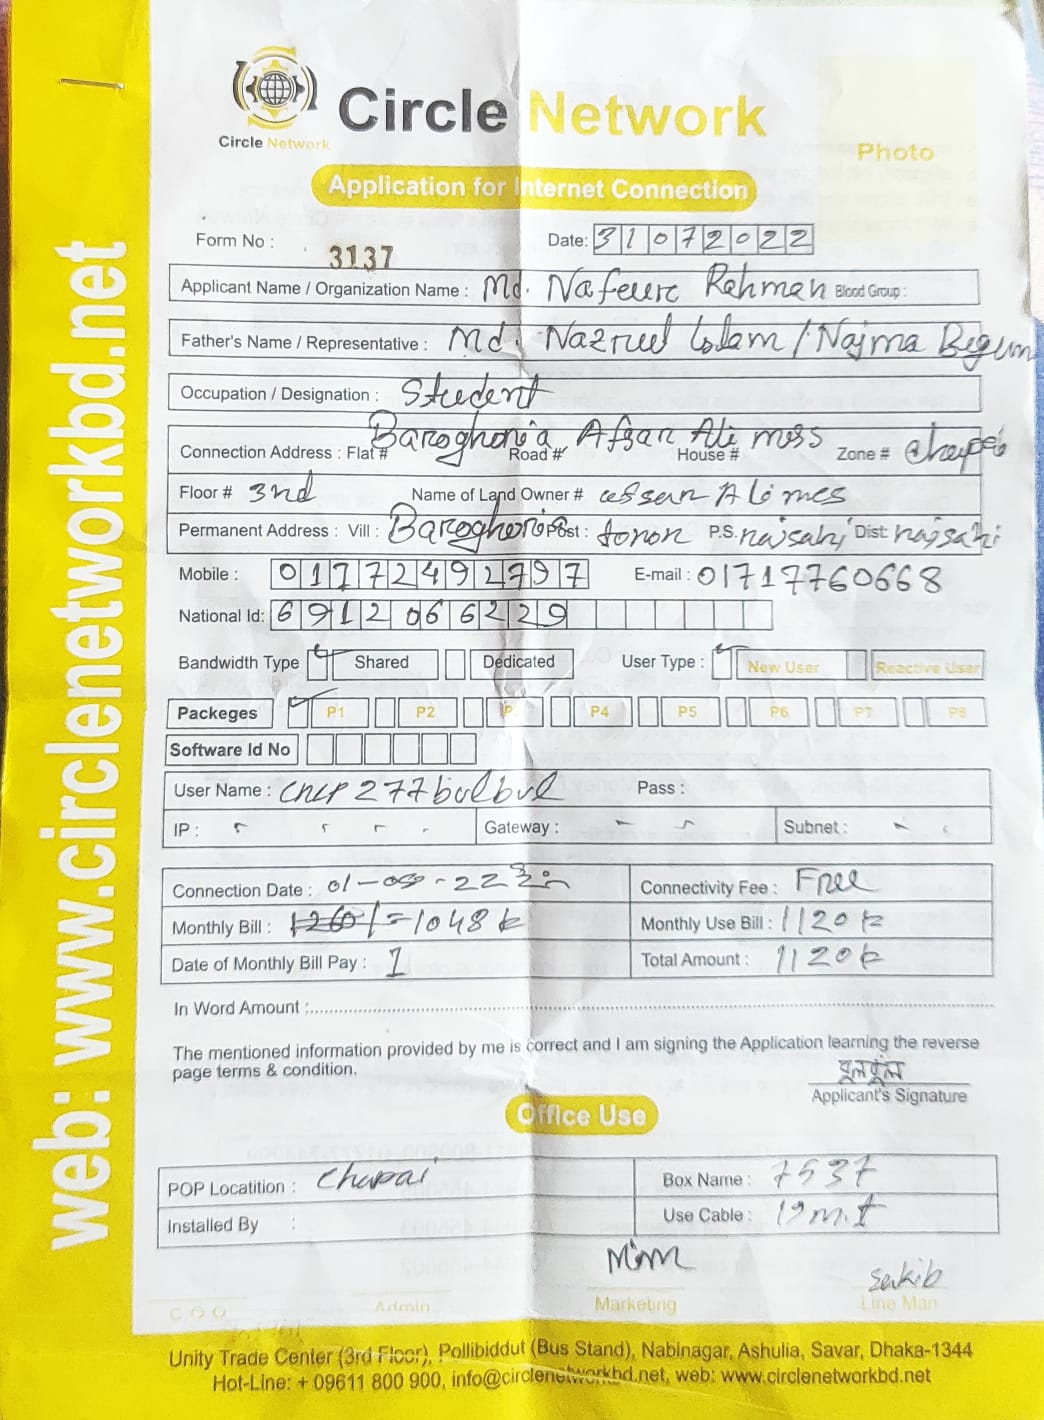 Circle Network
Circle Network
Photo
Application for Internet Connection
Form No : 3137
Date: 31072022
Applicant Name / Organization Name : Md. Nafeur Rahman Blood Group :
Father's Name / Representative : Md. Nazrul Islam / Najma Begum
Occupation / Designation : Student
Connection Address : Flat # Baroghoria Road # Afsar Ali House # mess Zone # Chapai
Floor # 3nd Name of Land Owner # afsar Ali mes
Permanent Address : Vill : Baroghoria Post : tonor P.S. rajsahi Dist: rajsahi
Mobile : 01772492797 E-mail : 01717760668
National Id: 6912066229
Bandwidth Type Shared Dedicated User Type : New User Reactive User
Packeges P1 P2 P P4 P5 P6 P7 P8
Software Id No
User Name : cncp277bulbul Pass :
IP : Gateway : Subnet :
Connection Date : 01-08-22 Connectivity Fee : Free
Monthly Bill : 1260/= 1048 tk Monthly Use Bill : 1120 tk
Date of Monthly Bill Pay : 1 Total Amount : 1120 tk
In Word Amount :
The mentioned information provided by me is correct and I am signing the Application learning the reverse
page terms & condition.
বুলবুল
Applicant's Signature
Office Use
POP Locatition : Chapai Box Name : 7537
Installed By : Use Cable : 19 m.t
Mim
Sakib
C O O Admin Marketing Line Man
Unity Trade Center (3rd Floor), Pollibiddut (Bus Stand), Nabinagar, Ashulia, Savar, Dhaka-1344
Hot-Line: + 09611 800 900, info@circlenetworkbd.net, web: www.circlenetworkbd.net
web: www.circlenetworkbd.net